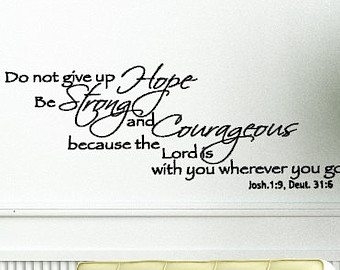 Do not give up Hope
Be Strong
and Courageous
because the
Lord is
with you wherever you go
Josh.1:9, Deut. 31:6